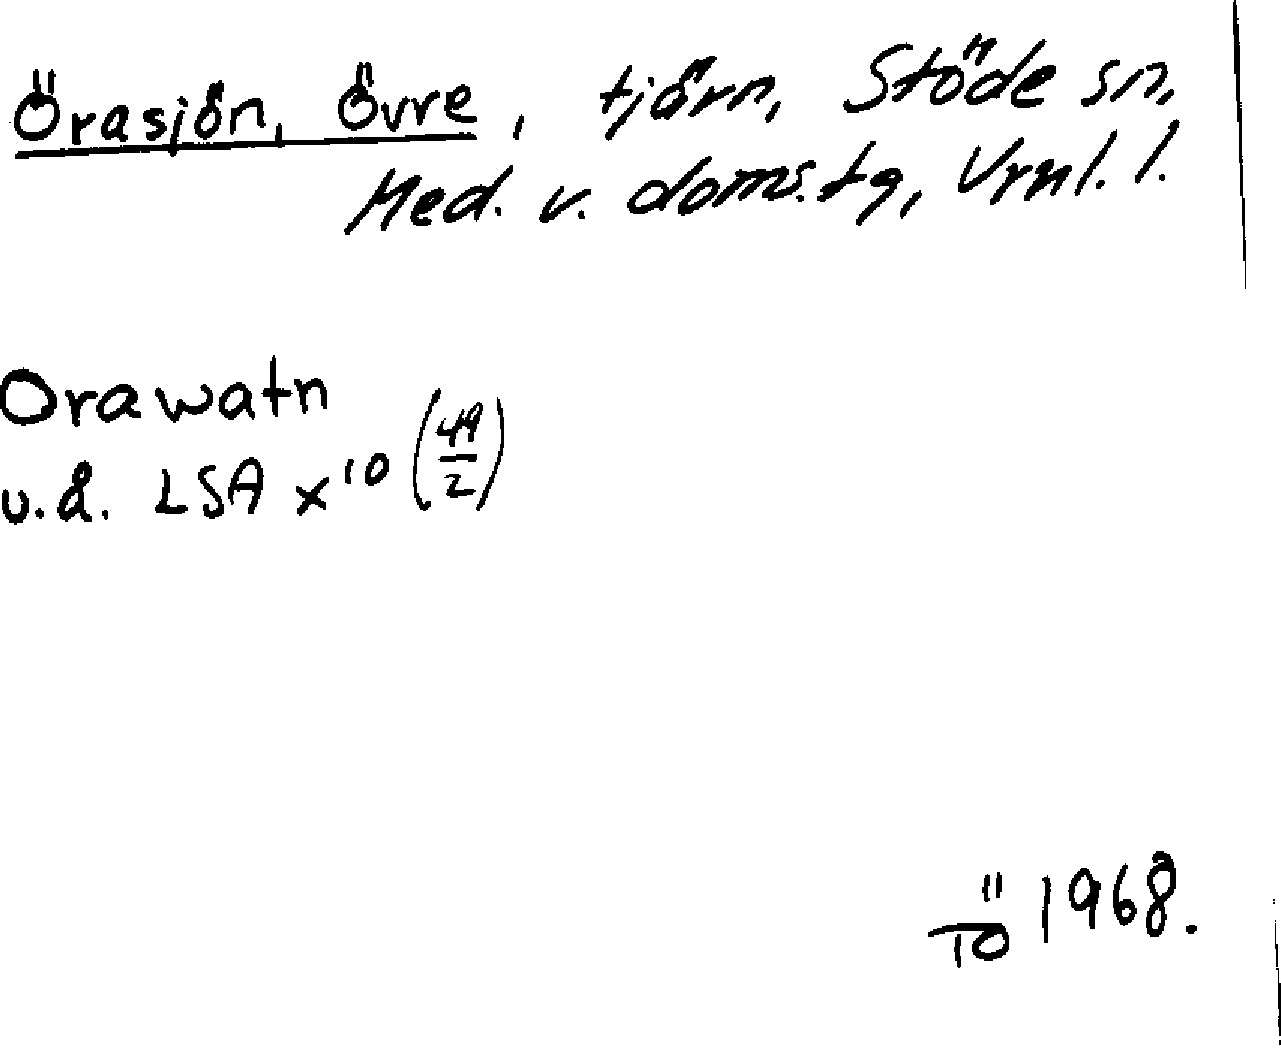 Örasjön, Övre, tjärn, Stöde sn,
Med. v. doms.tg, Vrnl. l.
Orawatn
u.å. LSA x¹⁰ (49/2)
11/10 1968.